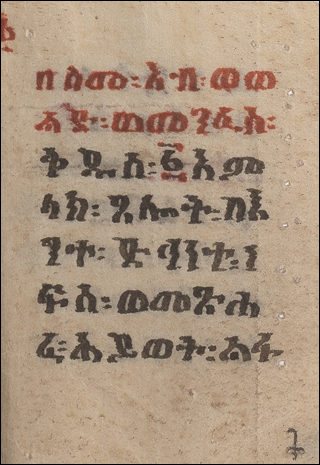 በስመ፡አብ፡ወወ
ልድ፡ወመንፈስ፡
ቅዱስ፡፩አም
ላክ፡ጸሎት፡በእ
ንተ፡ድኅነተ፡ነ
ፍስ፡ወመጽሐ
ፈ፡ሕይወት፡